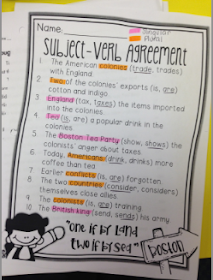 Name:
Singular
Plural
SUBJECT-VERB AGREEMENT
1. The American colonies (trade, trades)
with England.
2. Two of the colonies' exports (is, are)
cotton and indigo.
3. England (tax, taxes) the items imported
into the colonies.
4. Tea (is, are) a popular drink in the
colonies.
5. The Boston Tea Party (show, shows) the
colonists' anger about taxes.
6. Today, Americans (drink, drinks) more
coffee than tea.
7. Earlier conflicts (is, are) forgotten.
8. The two countries (consider, considers)
themselves close allies.
9. The colonists (is, are) training
10. The British king (send, sends) his army.
"one if by land
two if by sea"
BOSTON